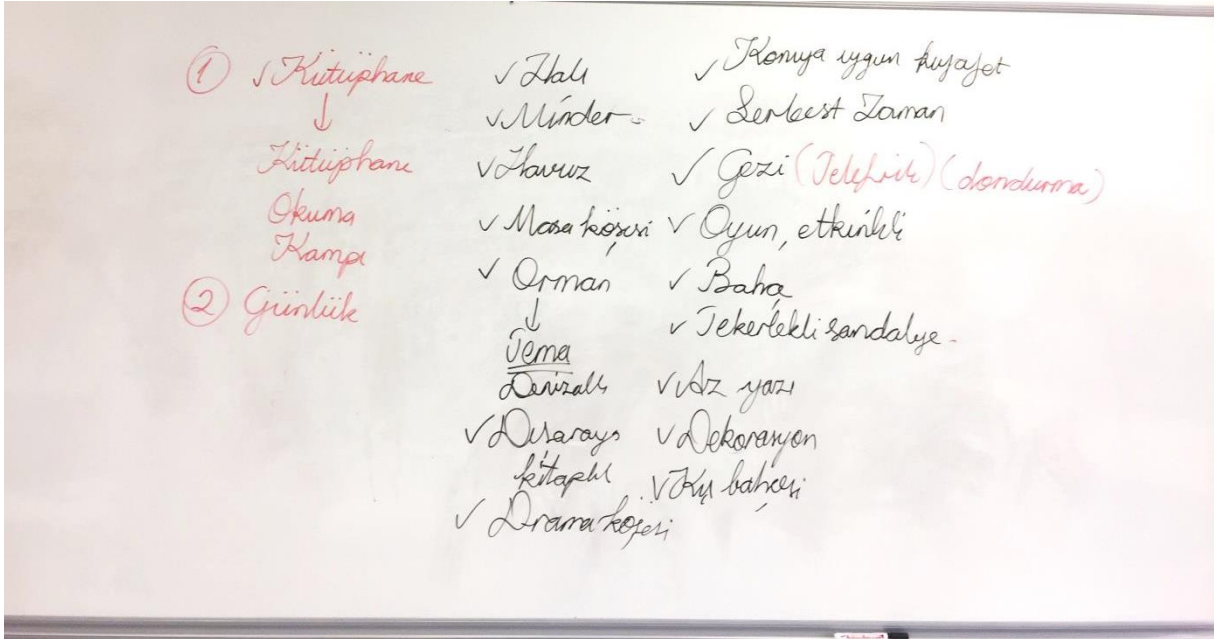 ① ✓ Kütüphane
↓
Kütüphane
Okuma
Kampı
② Günlük
✓ Halı
✓ Minder
✓ Havuz
✓ Masa köşesi
✓ Orman
↓
Tema
Denizaltı
✓ Dışaraya
kitaplık
✓ Drama köşesi
✓ Konuya uygun kıyafet
✓ Serbest Zaman
✓ Gezi (Teleferik) (dondurma)
✓ Oyun, etkinlik
✓ Bahçe
✓ Tekerlekli sandalye
✓ Az yazı
✓ Dekorasyon
✓ Kış bahçesi